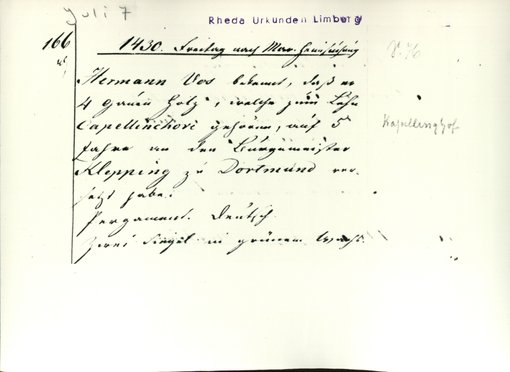 Juli 7
Rheda Urkunden Limburg
166
1430. Freitag nach Mar. Heimsuchung
Hermann Vos bekennt, daß er
4 gauen Holz, welche zum Lehn
Capellinchove gehören, auf 5
Jahre an den Bürgermeister
Klepping zu Dortmund ver-
setzt habe.
Pergament. Deutsch
zwei Siegel in grünem Wachs.